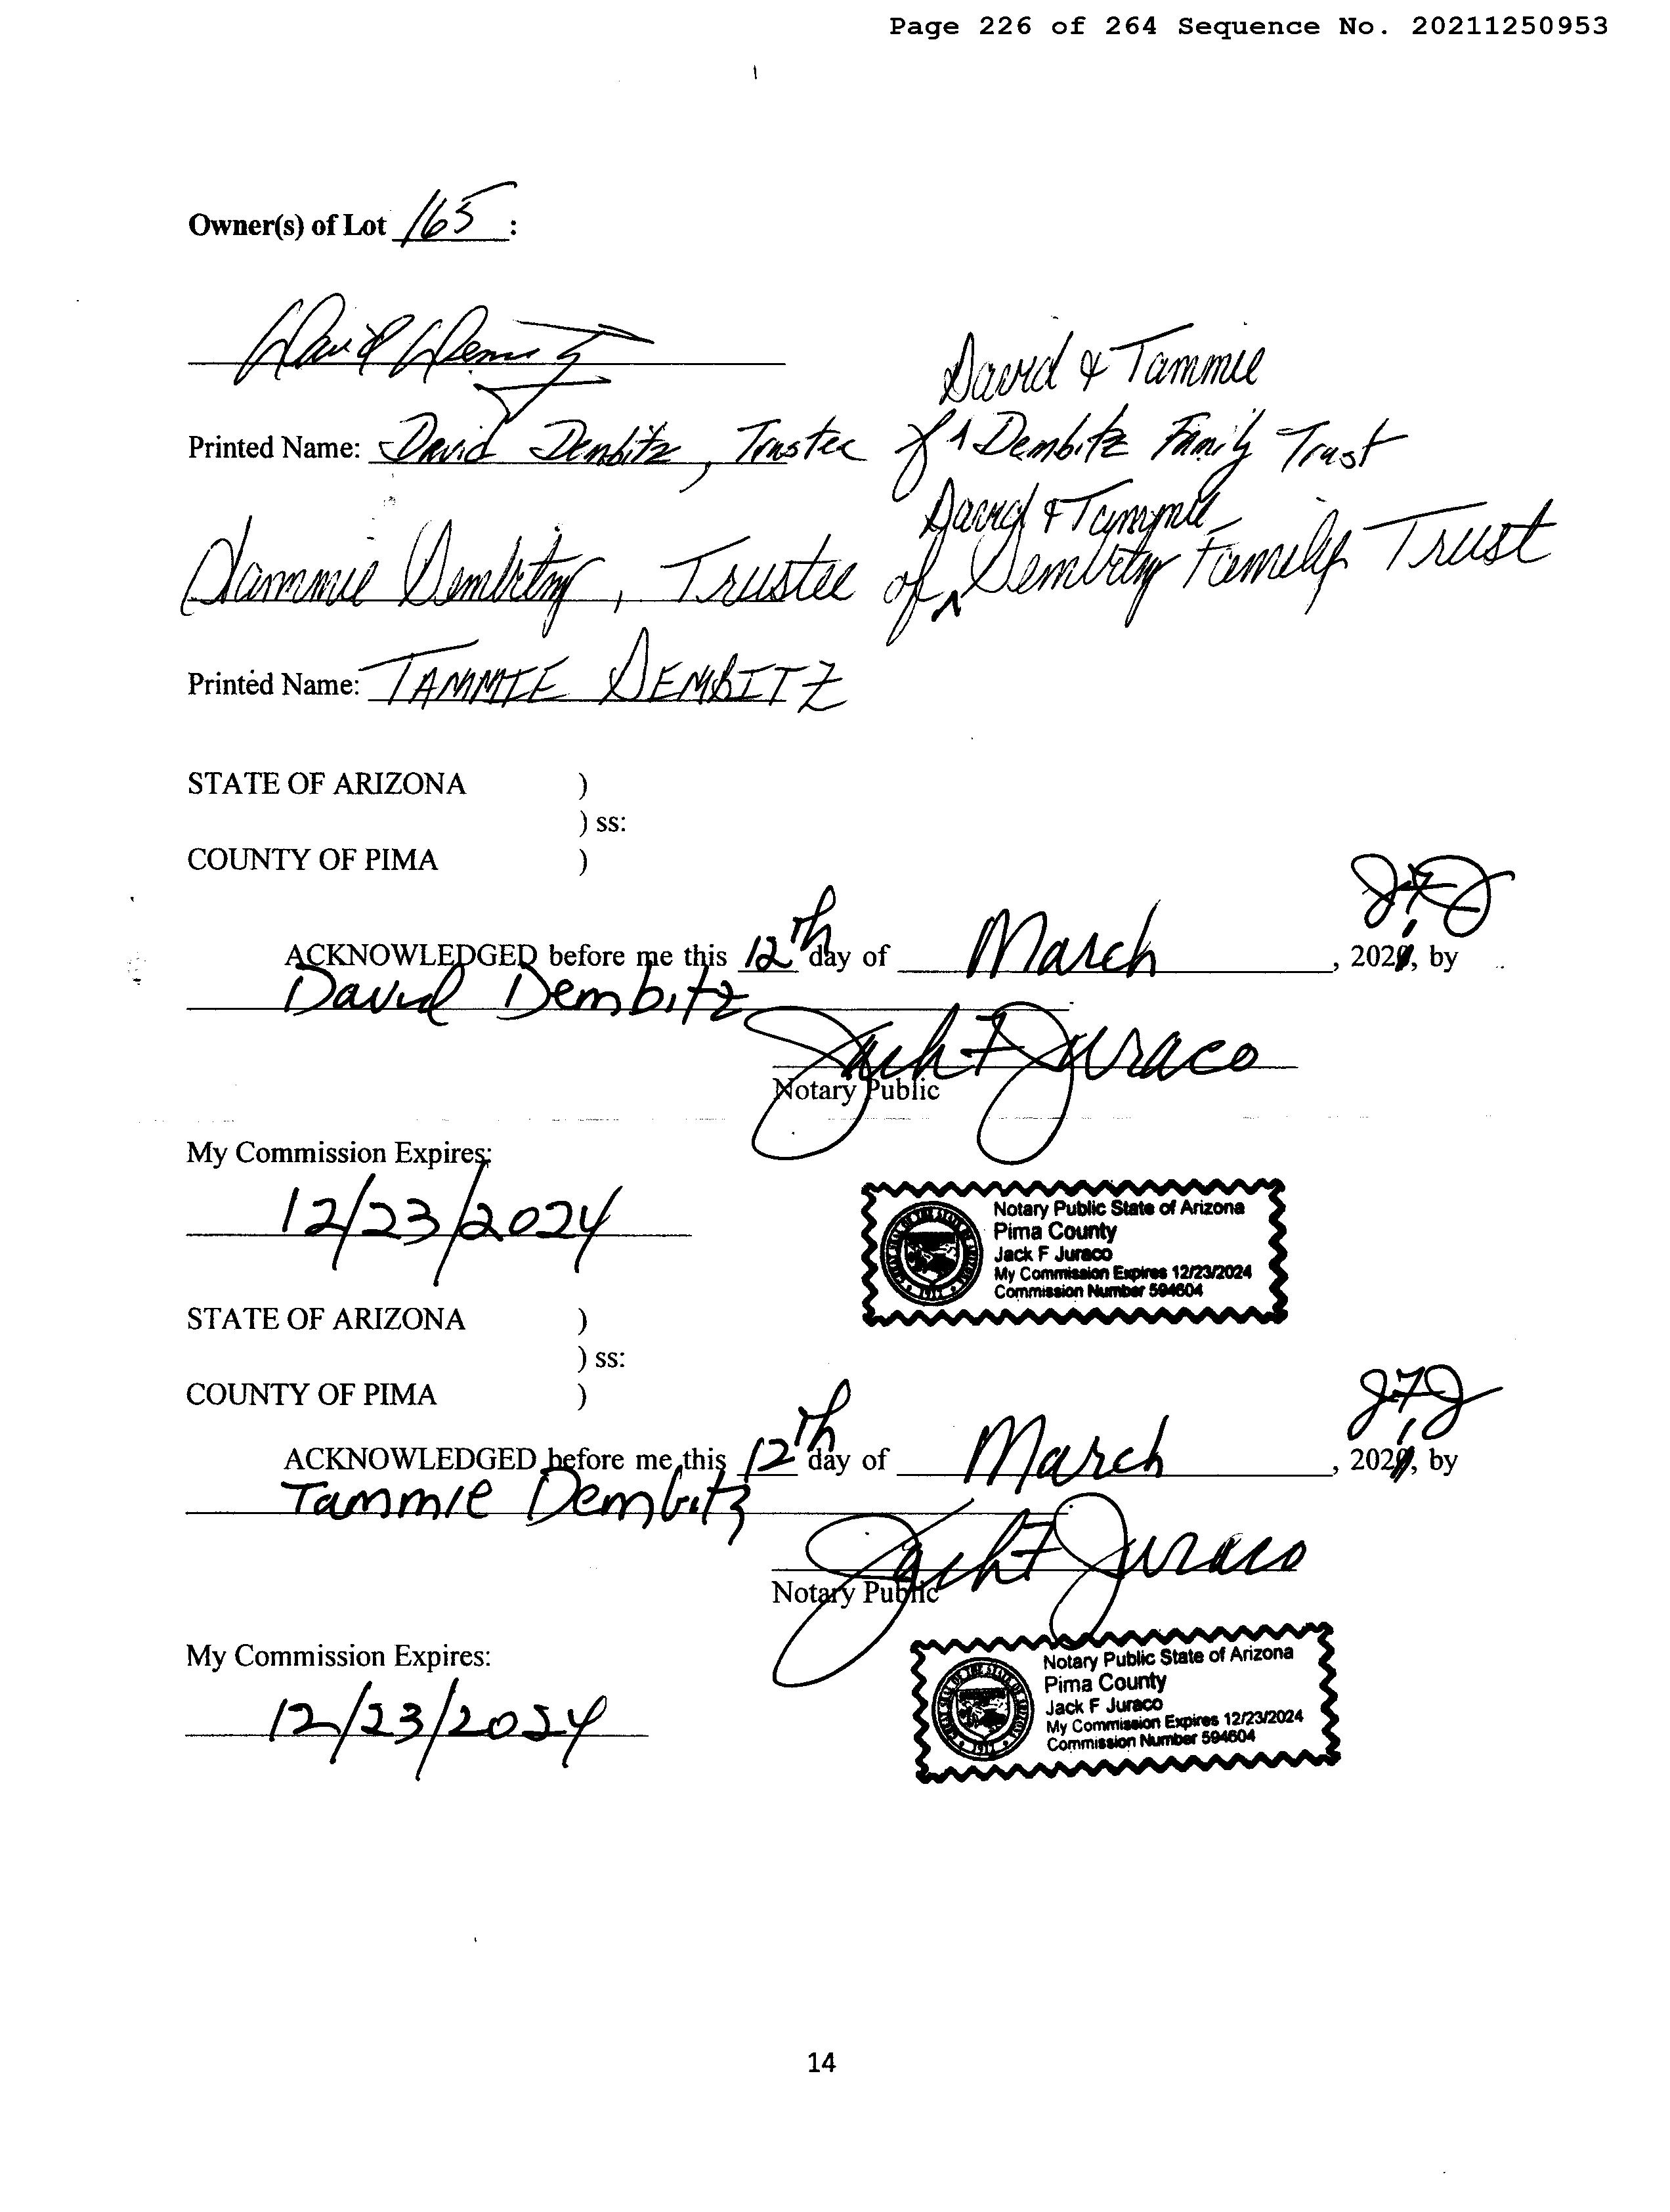 Page 226 of 264 Sequence No. 20211250953
Owner(s) of Lot 165 :
David & Tammie
Printed Name: David Dembitz, Trustee of ^ Dembitz Family Trust
David & Tammie
Tammie Dembitz, Trustee of ^ Dembitz Family Trust
Printed Name: TAMMIE DEMBITZ
STATE OF ARIZONA )
) ss:
COUNTY OF PIMA )
JFJ
ACKNOWLEDGED before me this 12th day of March, 2021, by
David Dembitz
Jack F Juraco
Notary Public
My Commission Expires:
12/23/2024
Notary Public State of Arizona
Pima County
Jack F Juraco
My Commission Expires 12/23/2024
Commission Number 594604
STATE OF ARIZONA )
) ss:
COUNTY OF PIMA )
JFJ
ACKNOWLEDGED before me this 12th day of March, 2021, by
Tammie Dembitz
Jack F Juraco
Notary Public
My Commission Expires:
12/23/2024
Notary Public State of Arizona
Pima County
Jack F Juraco
My Commission Expires 12/23/2024
Commission Number 594604
14